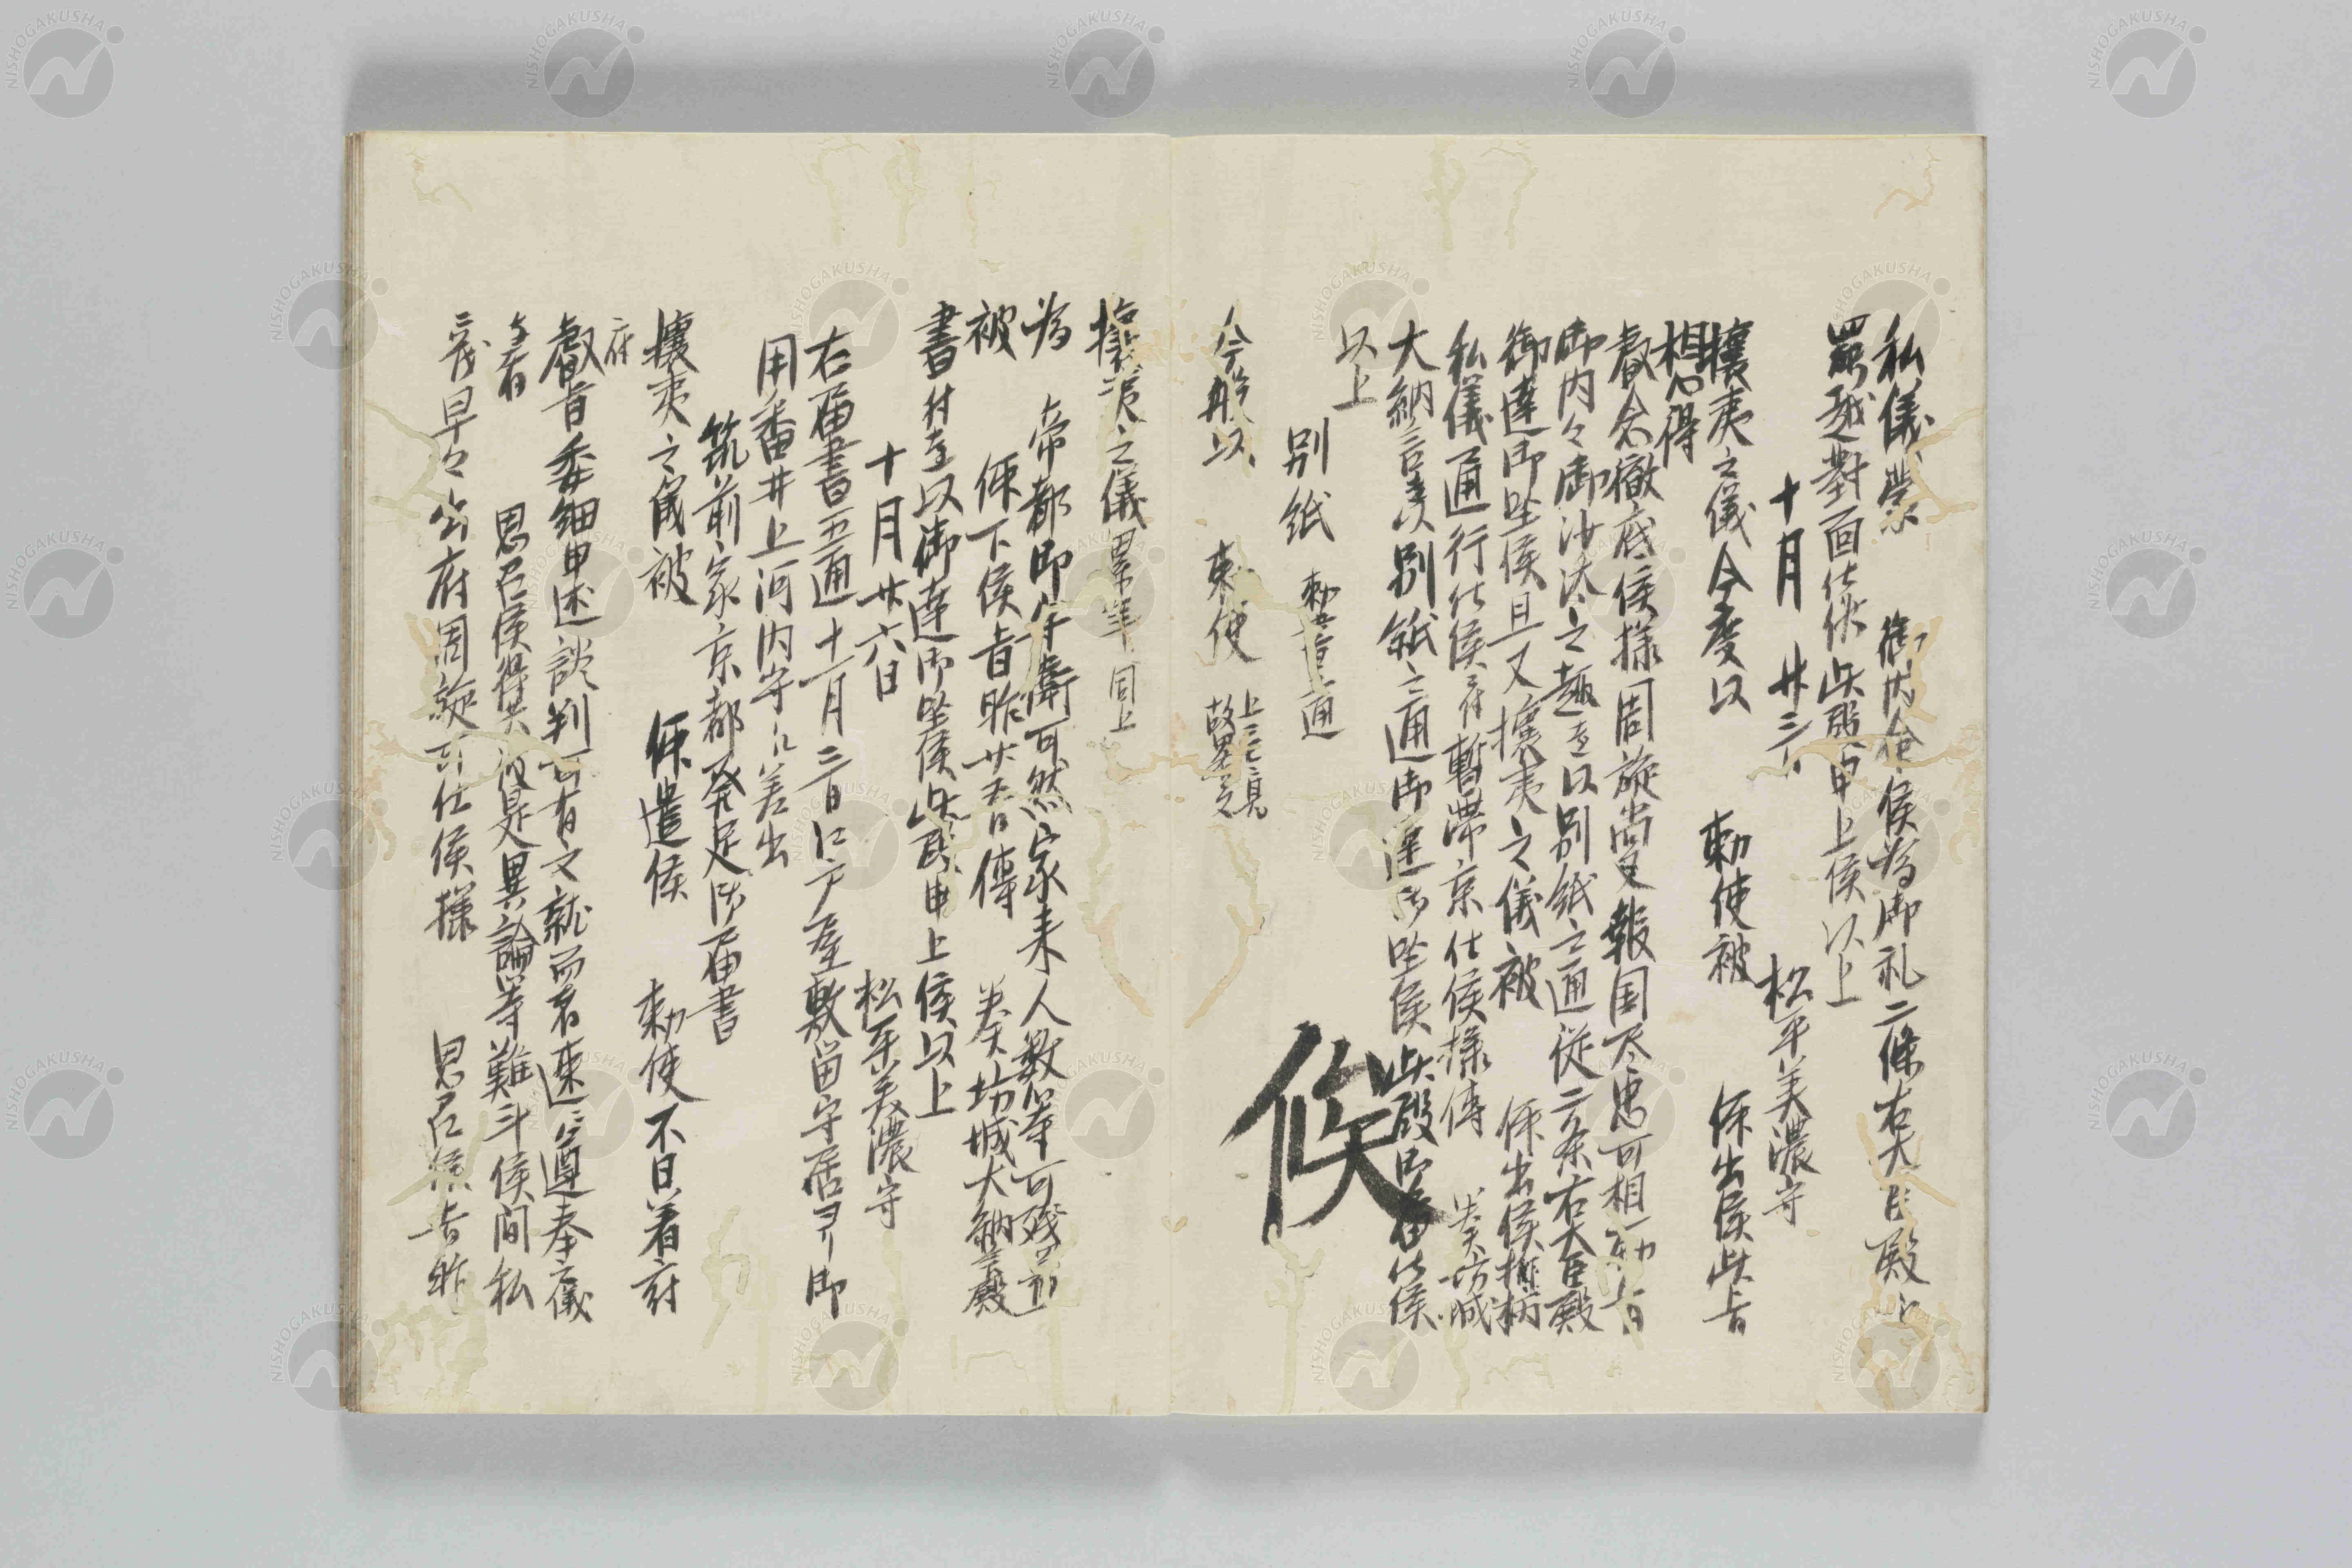 私儀蒙 御内命候為御礼二條右大臣殿江
罷越對面仕候此段申上候以上
十月廿三日 松平美濃守
攘夷之儀今度以 勅使被 仰出候此旨
相心得
叡念徹底候様周旋尚又報国尽忠可相勤旨
御内々御沙汰之趣在以別紙之通従二条右大臣殿
御達御坐候且又攘夷之儀被 仰出候折柄
私儀通行仕候ニ付暫滞京仕候様傳 奏坊城
大納言殿別紙之通御達御坐候此段御届仕候
以上
別紙 勅書一通
今般以 勅使 上ニ之見故畧之
候
攘夷之儀 畧筆同上
為 帝都御守衛可然家来人数等可残置
被 仰下候旨昨廿五日傳 奏坊城大納言殿
書付を以御達御坐候此段申上候以上
十月廿六日 松平美濃守
右届書五通十一月二日江戸屋敷留守居ヨリ御
用番井上河内守江差出
筑前家京都発足御届書
攘夷之儀被 仰遣候 勅使不日着府
府
叡旨委細申述談判可有之就而者速ニ遵奉之儀
与者 思召候得共彼是異論等難斗候間私
ニ茂早々出府周旋可仕候様 思召候旨昨